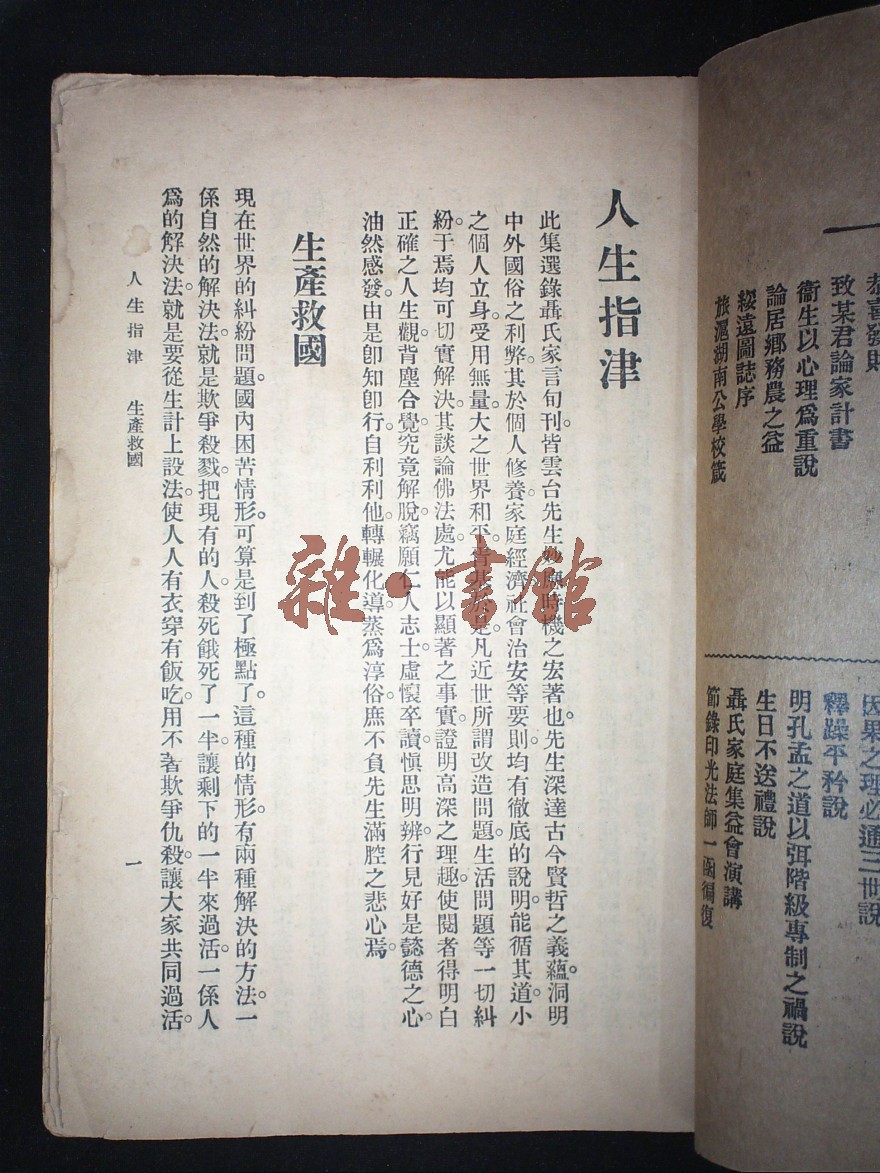 恭喜發財
致某君論家計書
衞生以心理爲重說
論居鄉務農之益
綏遠圖誌序
旅滬湖南公學校箴
因果之理必通三世說
釋躁平矜說
明孔孟之道以弭階級專制之禍說
生日不送禮說
聶氏家庭集益會演講
節錄印光法師一函徧復
人生指津
此集選錄聶氏家言旬刊。皆雲台先生妙應時機之宏著也。先生深達古今賢哲之義蘊。洞明
中外國俗之利弊。其於個人修養。家庭經濟社會治安等要則。均有徹底的說明。能循其道。小
之個人立身。受用無量。大之世界和平。胥基於是。凡近世所謂改造問題。生活問題等一切糾
紛。于焉均可切實解決。其談論佛法處。尤能以顯著之事實。證明高深之理趣。使閱者得明白
正確之人生觀。背塵合覺。究竟解脫。竊願仁人志士。虛懷卒讀。愼思明辨。行見好是懿德之心。
油然感發。由是卽知卽行。自利利他。轉輾化導。蒸爲淳俗。庶不負先生滿腔之悲心焉。
生產救國
現在世界的糾紛問題。國內困苦情形。可算是到了極點了。這種的情形。有兩種解決的方法。一
係自然的解決法。就是欺爭殺戮。把現有的人。殺死餓死了一半。讓剩下的一半來過活。一係人
爲的解決法。就是要從生計上設法。使人人有衣穿有飯吃。用不著欺爭仇殺。讓大家共同過活。
人生指津 生產救國
一
雜·書館